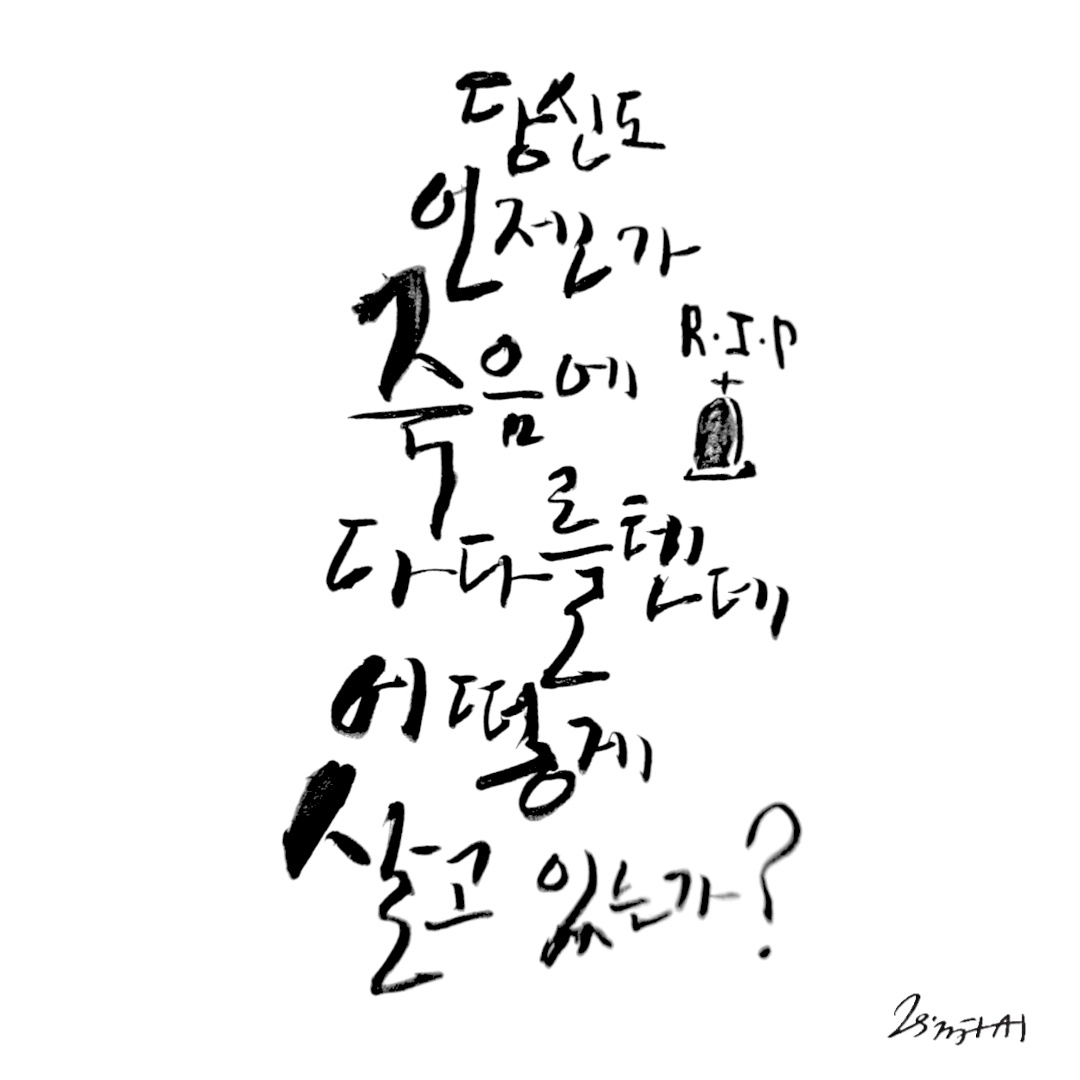 당신도
언젠가
죽음에
R.I.P
다다를텐데
어떻게
살고 있는가?